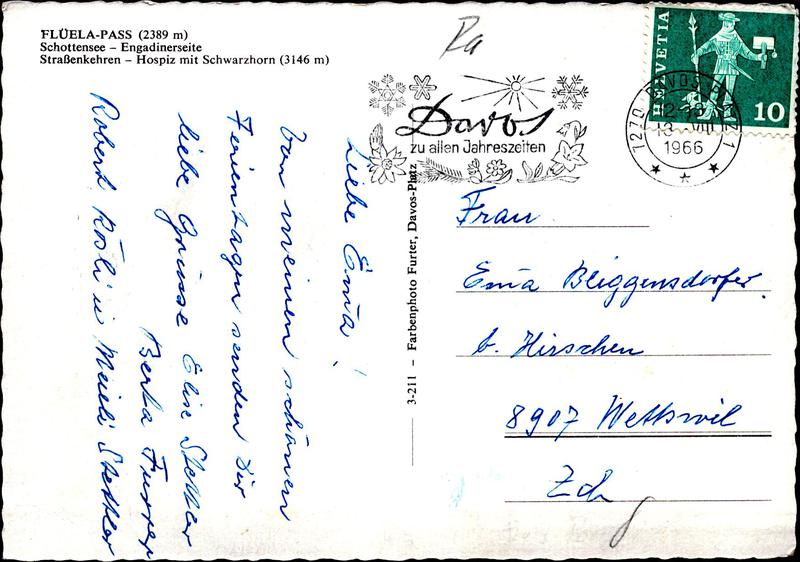 FLÜELA-PASS (2389 m)
Schottensee – Engadinerseite
Straßenkehren – Hospiz mit Schwarzhorn (3146 m)
Ra
Davos
zu allen Jahreszeiten
HELVETIA
10
7270 DAVOS PLATZ 1
1966
Liebe Ema!
Von meinen schönen
Ferientagen senden Dir
liebe Grüsse Elise Stettler
Berta Furrer
Robert Rösli u Maieli Stettler
3-211 – Farbenphoto Furter, Davos-Platz
Frau
Ema Bliggensdorfer
b. Hirschen
8907 Wettswil
Zch